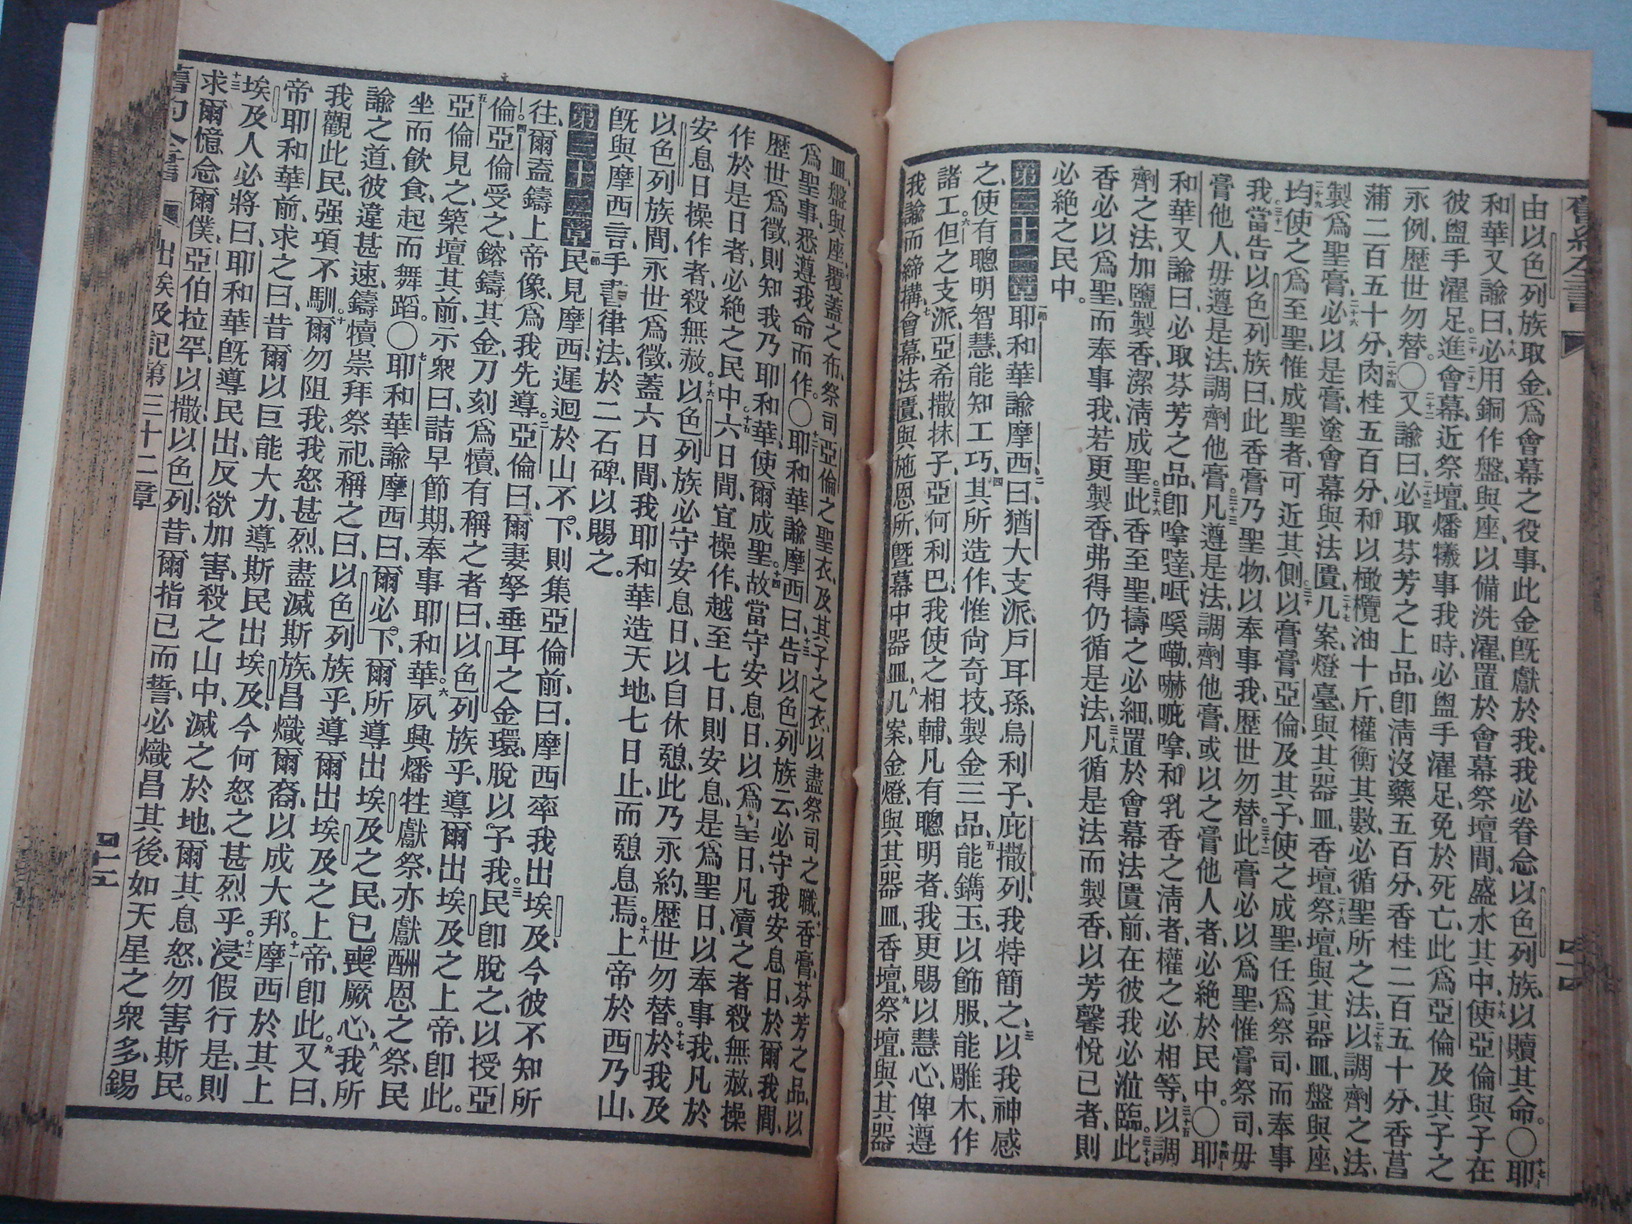 由以色列族取金、爲會幕之役事、此金旣獻於我、我必眷念以色列族、以贖其命。〇耶
和華又諭曰、必用銅作盤、與座、以備洗濯、置於會幕祭壇間、盛水其中、使亞倫與子在
彼盥手濯足、進會幕、近祭壇、燔犧事我時、必盥手濯足、免於死亡、此爲亞倫及其子之
永例、歷世勿替。〇又諭曰、必取芬芳之上品、卽淸沒藥五百分、香桂二百五十分、香菖
蒲二百五十分、肉桂五百分、和以橄欖油十斤、權衡其數、必循聖所之法、以調劑之法、
製爲聖膏、必以是膏、塗會幕與法匱、几案、燈臺、與其器皿、香壇、祭壇、與其器皿、盤與座、
均使之爲至聖、惟成聖者、可近其側、以膏膏亞倫及其子、使之成聖、任爲祭司、而奉事
我、當告以色列族曰、此香膏乃聖物、以奉事我、歷世勿替、此膏必以爲聖、惟膏祭司、毋
膏他人、毋遵是法、調劑他膏、凡遵是法、調劑他膏、或以之膏他人者、必絕於民中。〇耶
和華又諭曰、必取芬芳之品、卽嗱噠呧、㗖嘞嚇㖠嗱、和乳香之淸者、權之必相等、以調
劑之法、加鹽製香、潔淸成聖、此香至聖、擣之必細、置於會幕法匱前、在彼我必涖臨、此
香必以爲聖、而奉事我、若更製香、弗得仍循是法、凡循是法而製香、以芳馨悅己者、則
必絕之民中。
第三十一章 耶和華諭摩西、曰、猶大支派、戶耳孫、烏利子、庇撒列、我特簡之、以我神感
之、使有聰明智慧、能知工巧、其所造作、惟尙奇技、製金三品、能鐫玉以飾服、能雕木、作
諸工、但之支派、亞希撒抹子、亞何利巴、我使之相輔、凡有聰明者、我更賜以慧心、俾遵
我諭、而締構會幕、法匱、與施恩所、曁幕中器皿、几案、金燈、與其器皿、香壇、祭壇、與其器
皿、盤與座、覆蓋之布、祭司亞倫之聖衣、及其子之衣、以盡祭司之職、香膏、芬芳之品、以
爲聖事、悉遵我命而作。〇耶和華諭摩西曰、告以色列族云、必守我安息日、於爾我間、
歷世爲徵、則知我乃耶和華、使爾成聖、故當守安息日、以爲聖日、凡瀆之者、殺無赦、操
作於是日者、必絕之民中、六日間、宜操作、越至七日、則安息、是爲聖日、以奉事我、凡於
安息日操作者、殺無赦、以色列族必守安息日、以自休憩、此乃永約、歷世勿替、於我及
以色列族間、永世爲徵、蓋六日間、我耶和華造天地、七日止、而憩息焉、上帝於西乃山、
旣與摩西言、手書律法、於二石碑、以賜之。
第三十二章 民見摩西遲迴於山不下、則集亞倫前、曰、摩西率我出埃及、今彼不知所
往、爾盍鑄上帝像、爲我先導、亞倫曰、爾妻孥垂耳之金環、脫以予我、民卽脫之、以授亞
倫、亞倫受之、鎔鑄其金、刀刻爲犢、有稱之者曰、以色列族乎、導爾出埃及之上帝、卽此。
亞倫見之、築壇其前、示衆曰、詰早節期、奉事耶和華。夙興燔牲獻祭、亦獻酬恩之祭、民
坐而飮食、起而舞蹈。〇耶和華諭摩西曰、爾必下、爾所導出埃及之民、已喪厥心、我所
諭之道、彼違甚速、鑄犢崇拜祭祀、稱之曰、以色列族乎、導爾出埃及之上帝、卽此。又曰、
我觀此民、强項不馴、爾勿阻我、我怒甚烈、盡滅斯族、昌熾爾裔、以成大邦、摩西於其上
帝耶和華前、求之曰、昔爾以巨能大力、導斯民出埃及、今何怒之甚烈乎、浸假行是、則
埃及人必將曰、耶和華旣導民出、反欲加害、殺之山中、滅之於地、爾其息怒、勿害斯民。
求爾憶念爾僕、亞伯拉罕、以撒、以色列、昔爾指己而誓、必熾昌其後、如天星之衆多、錫
舊約全書 出埃及記第三十二章 四十五